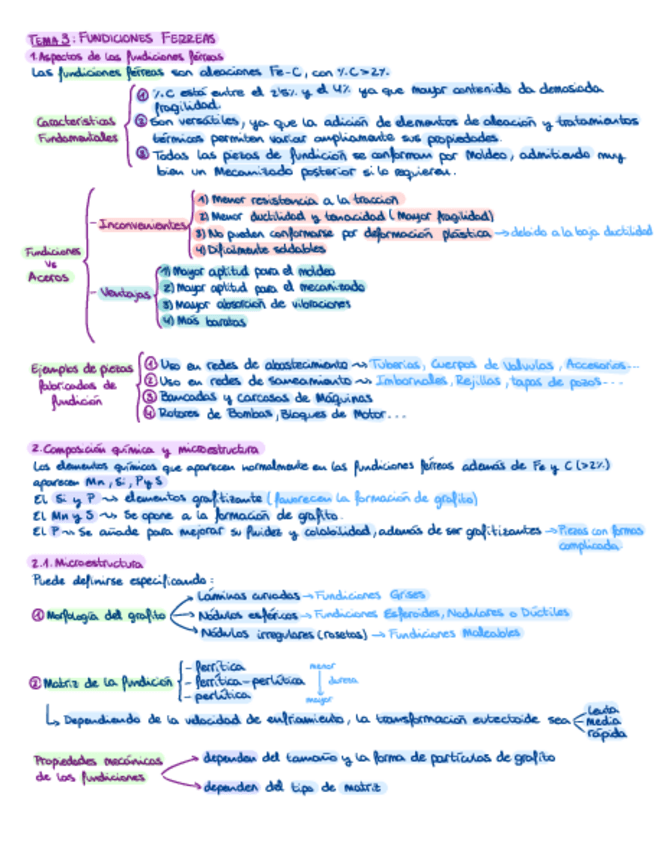 TEMA 3: FUNDICIONES FÉRREAS
1. Aspectos de las fundiciones férreas
Las fundiciones férreas son aleaciones Fe-C, con %C>2%.
Características
Fundamentales
① %C está entre el 2'5% y el 4% ya que mayor contenido da demasiada
fragilidad.
② Son versátiles, ya que la adición de elementos de aleación y tratamientos
térmicos permiten variar ampliamente sus propiedades.
③ Todas las piezas de fundición se conforman por Moldeo, admitiendo muy
bien un Mecanizado posterior si lo requieren.
Fundiciones
vs
Aceros
- Inconvenientes
1) Menor resistencia a la tracción
2) Menor ductilidad y tenacidad (Mayor fragilidad)
3) No pueden conformarse por deformación plástica → debido a la baja ductilidad
4) Difícilmente soldables
- Ventajas
1) Mayor aptitud para el moldeo
2) Mayor aptitud para el mecanizado
3) Mayor absorción de vibraciones
4) Más baratas
Ejemplos de piezas
fabricadas de
fundición
① Uso en redes de abastecimiento ↝ Tuberías, Cuerpos de Valvulas, Accesorios...
② Uso en redes de saneamiento ↝ Imbornales, Rejillas, tapas de pozos...
③ Bancadas y carcasas de Máquinas
④ Rotores de Bombas, Bloques de Motor...
2. Composición química y microestructura
Los elementos químicos que aparecen normalmente en las fundiciones férreas además de Fe y C (>2%)
aparecen Mn, Si, P y S
El Si y P ↝ elementos grafitizante (favorecen la formación de grafito)
El Mn y S ↝ Se opone a la formación de grafito.
El P ↝ Se añade para mejorar su fluidez y colabilidad, además de ser grafitizantes → Piezas con formas
complicada
2.1. Microestructura
Puede definirse especificando:
① Morfología del grafito
Láminas curvadas → Fundiciones Grises
Nódulos esféricos → Fundiciones Esferoides, Nodulares o Dúctiles
Nódulos irregulares (rosetas) → Fundiciones Maleables
② Matriz de la fundición
- ferrítica
- ferrítica-perlítica
- perlítica
menor
dureza
mayor
↳ Dependiendo de la velocidad de enfriamiento, la transformación eutectoide sea
lenta
media
rápida
Propiedades mecánicas
de las fundiciones
dependen del tamaño y la forma de partículas de grafito
dependen del tipo de matriz